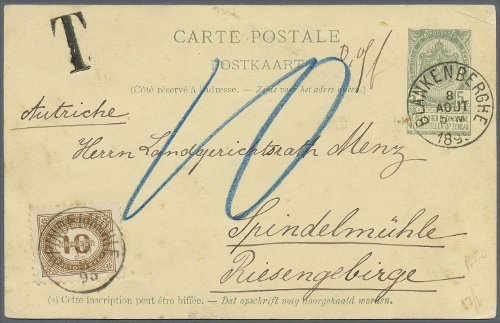 T
CARTE POSTALE
POSTKAART
(Côté réservé à l'adresse. — Zijde voor het adres alleen.)
BLANKENBERGHE
8
AOÛT
5
189
Autriche
Herrn Landgerichtsrath Menz
10
Spindelmühle
Riesengebirge
10
95
(o) Cette inscription peut être biffée. — Dat opschrift mag doorgehaald worden.